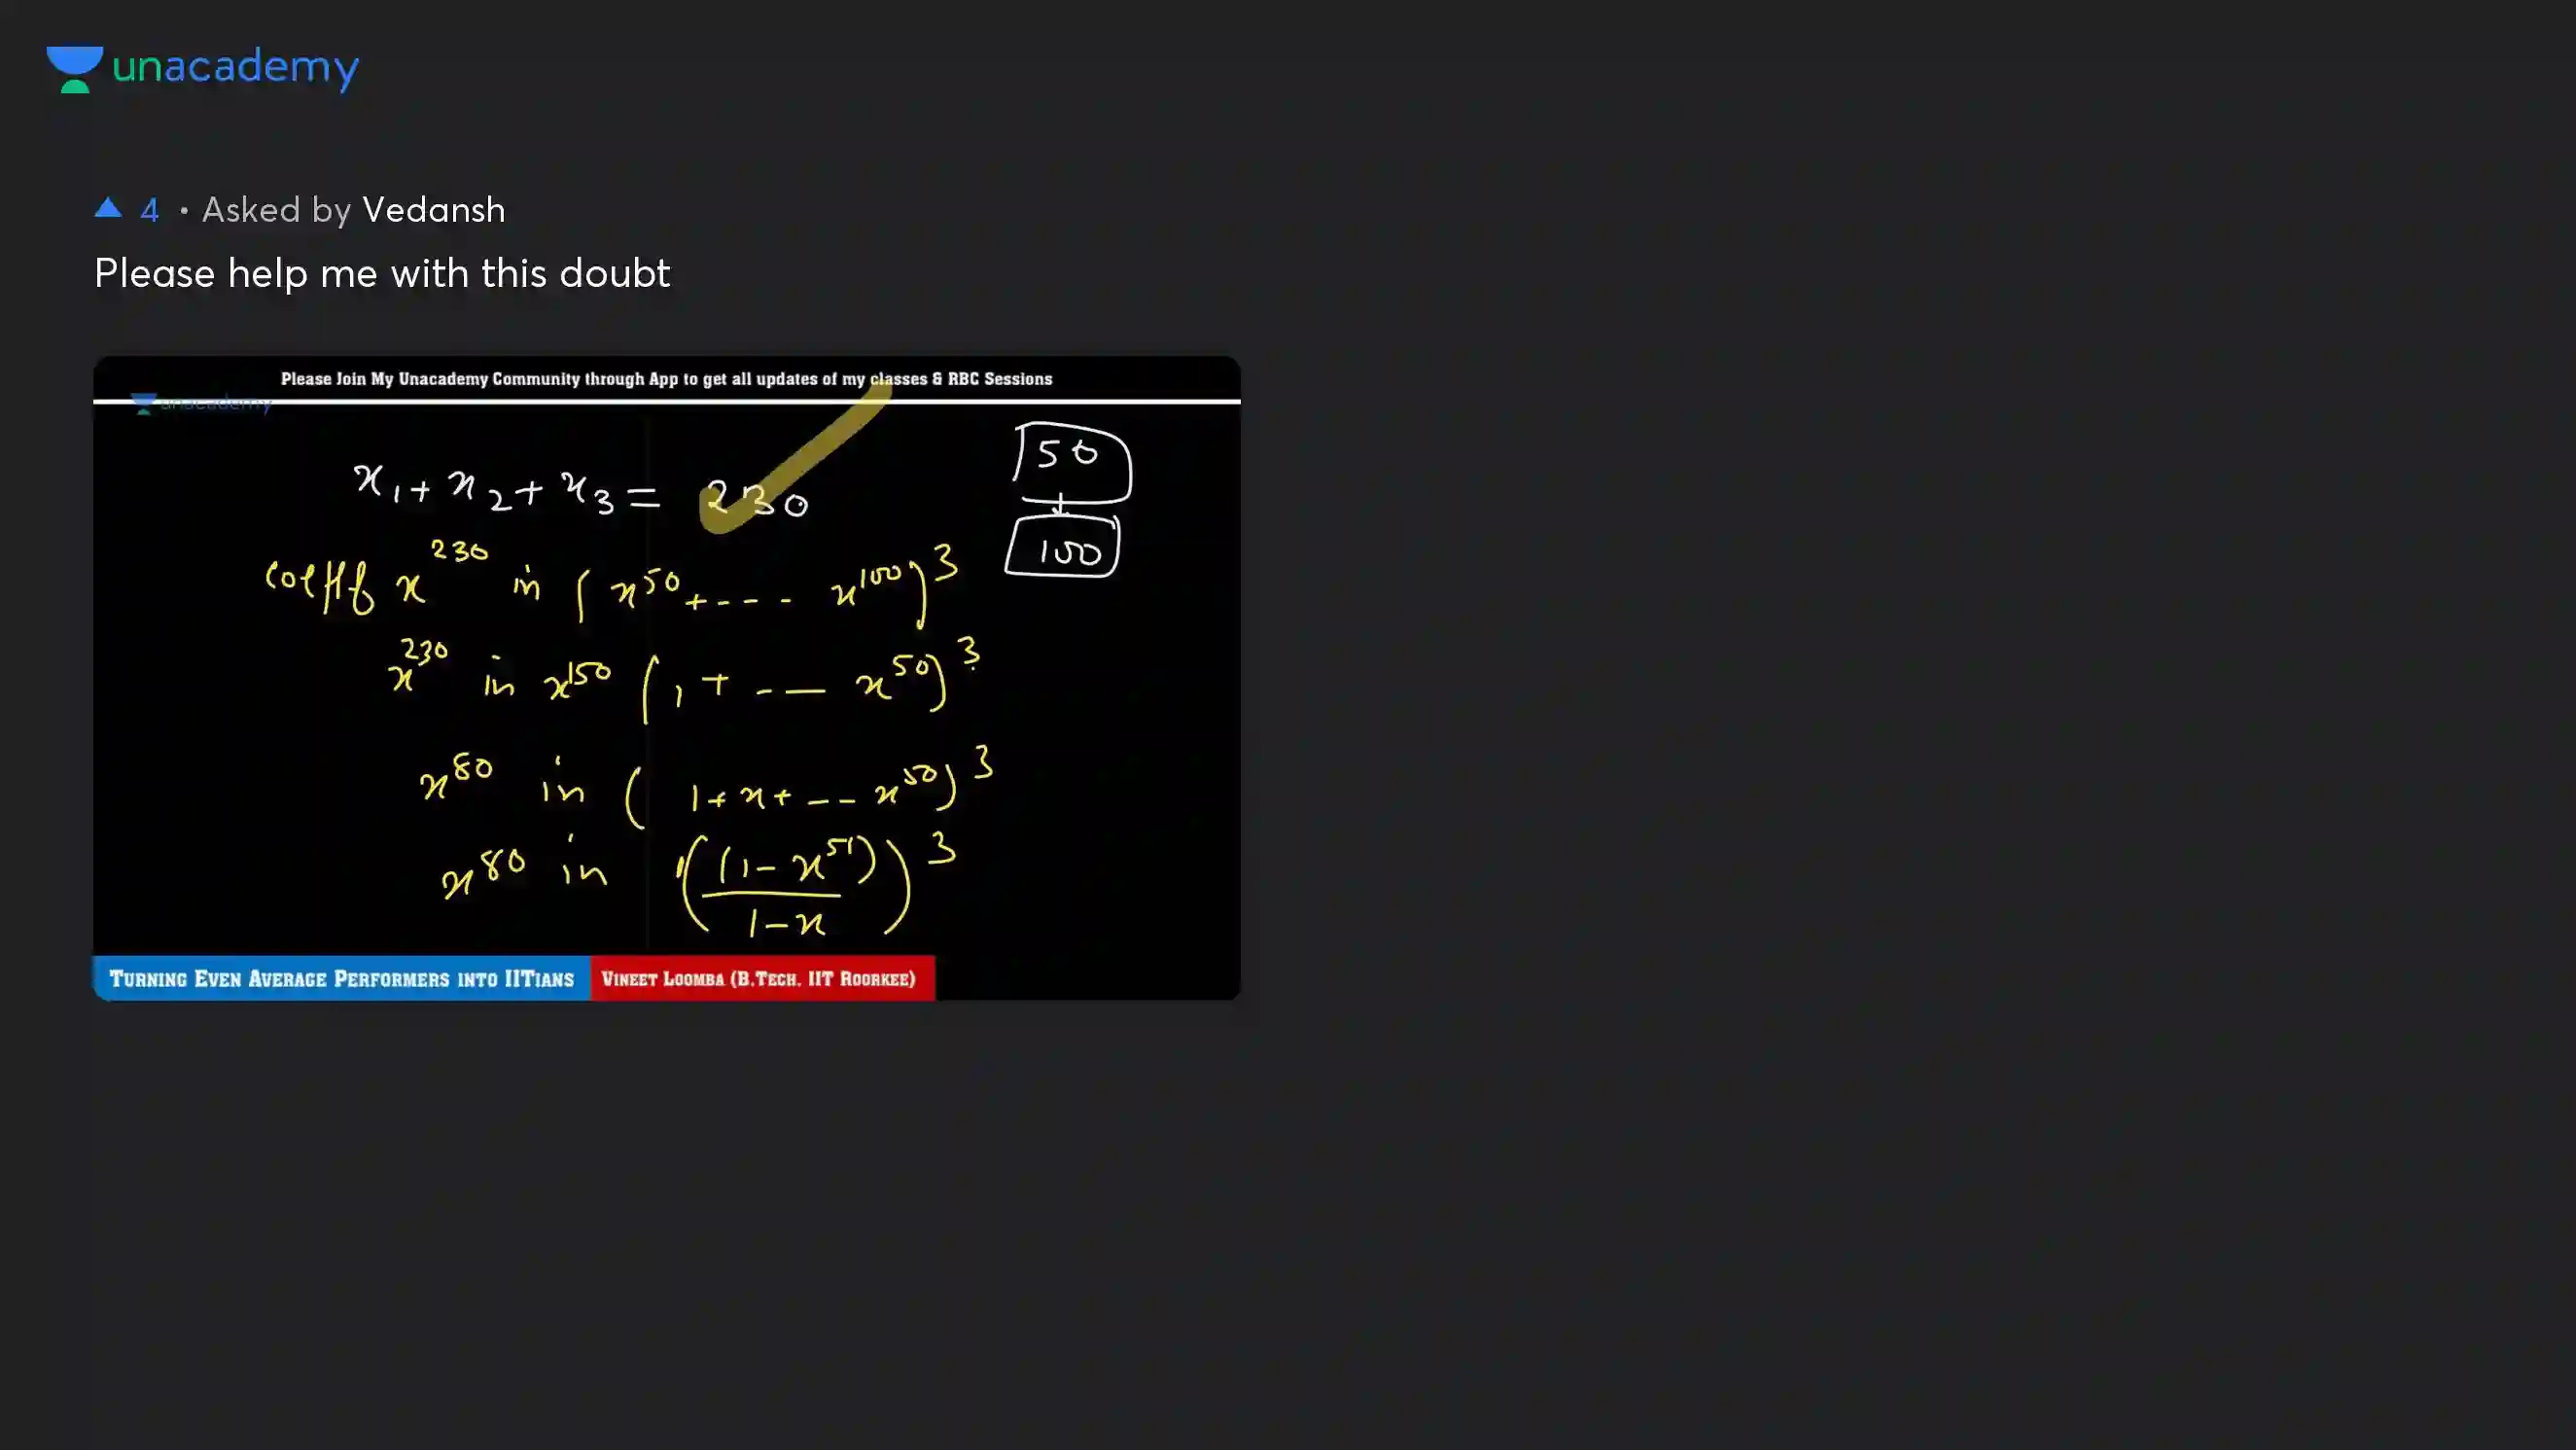 unacademy
▲ 4 • Asked by Vedansh
Please help me with this doubt
Please Join My Unacademy Community through App to get all updates of my classes & RBC Sessions
unacademy
x₁ + x₂ + x₃ = 230
50
100
coeff x²³⁰ in (x⁵⁰ + --- x¹⁰⁰)³
x²³⁰ in x¹⁵⁰ (1 + -- x⁵⁰)³
x⁸⁰ in (1 + x + -- x⁵⁰)³
x⁸⁰ in ((1 - x⁵¹) / 1 - x)³
Turning Even Average Performers into IITians Vineet Loomba (B.Tech. IIT Roorkee)